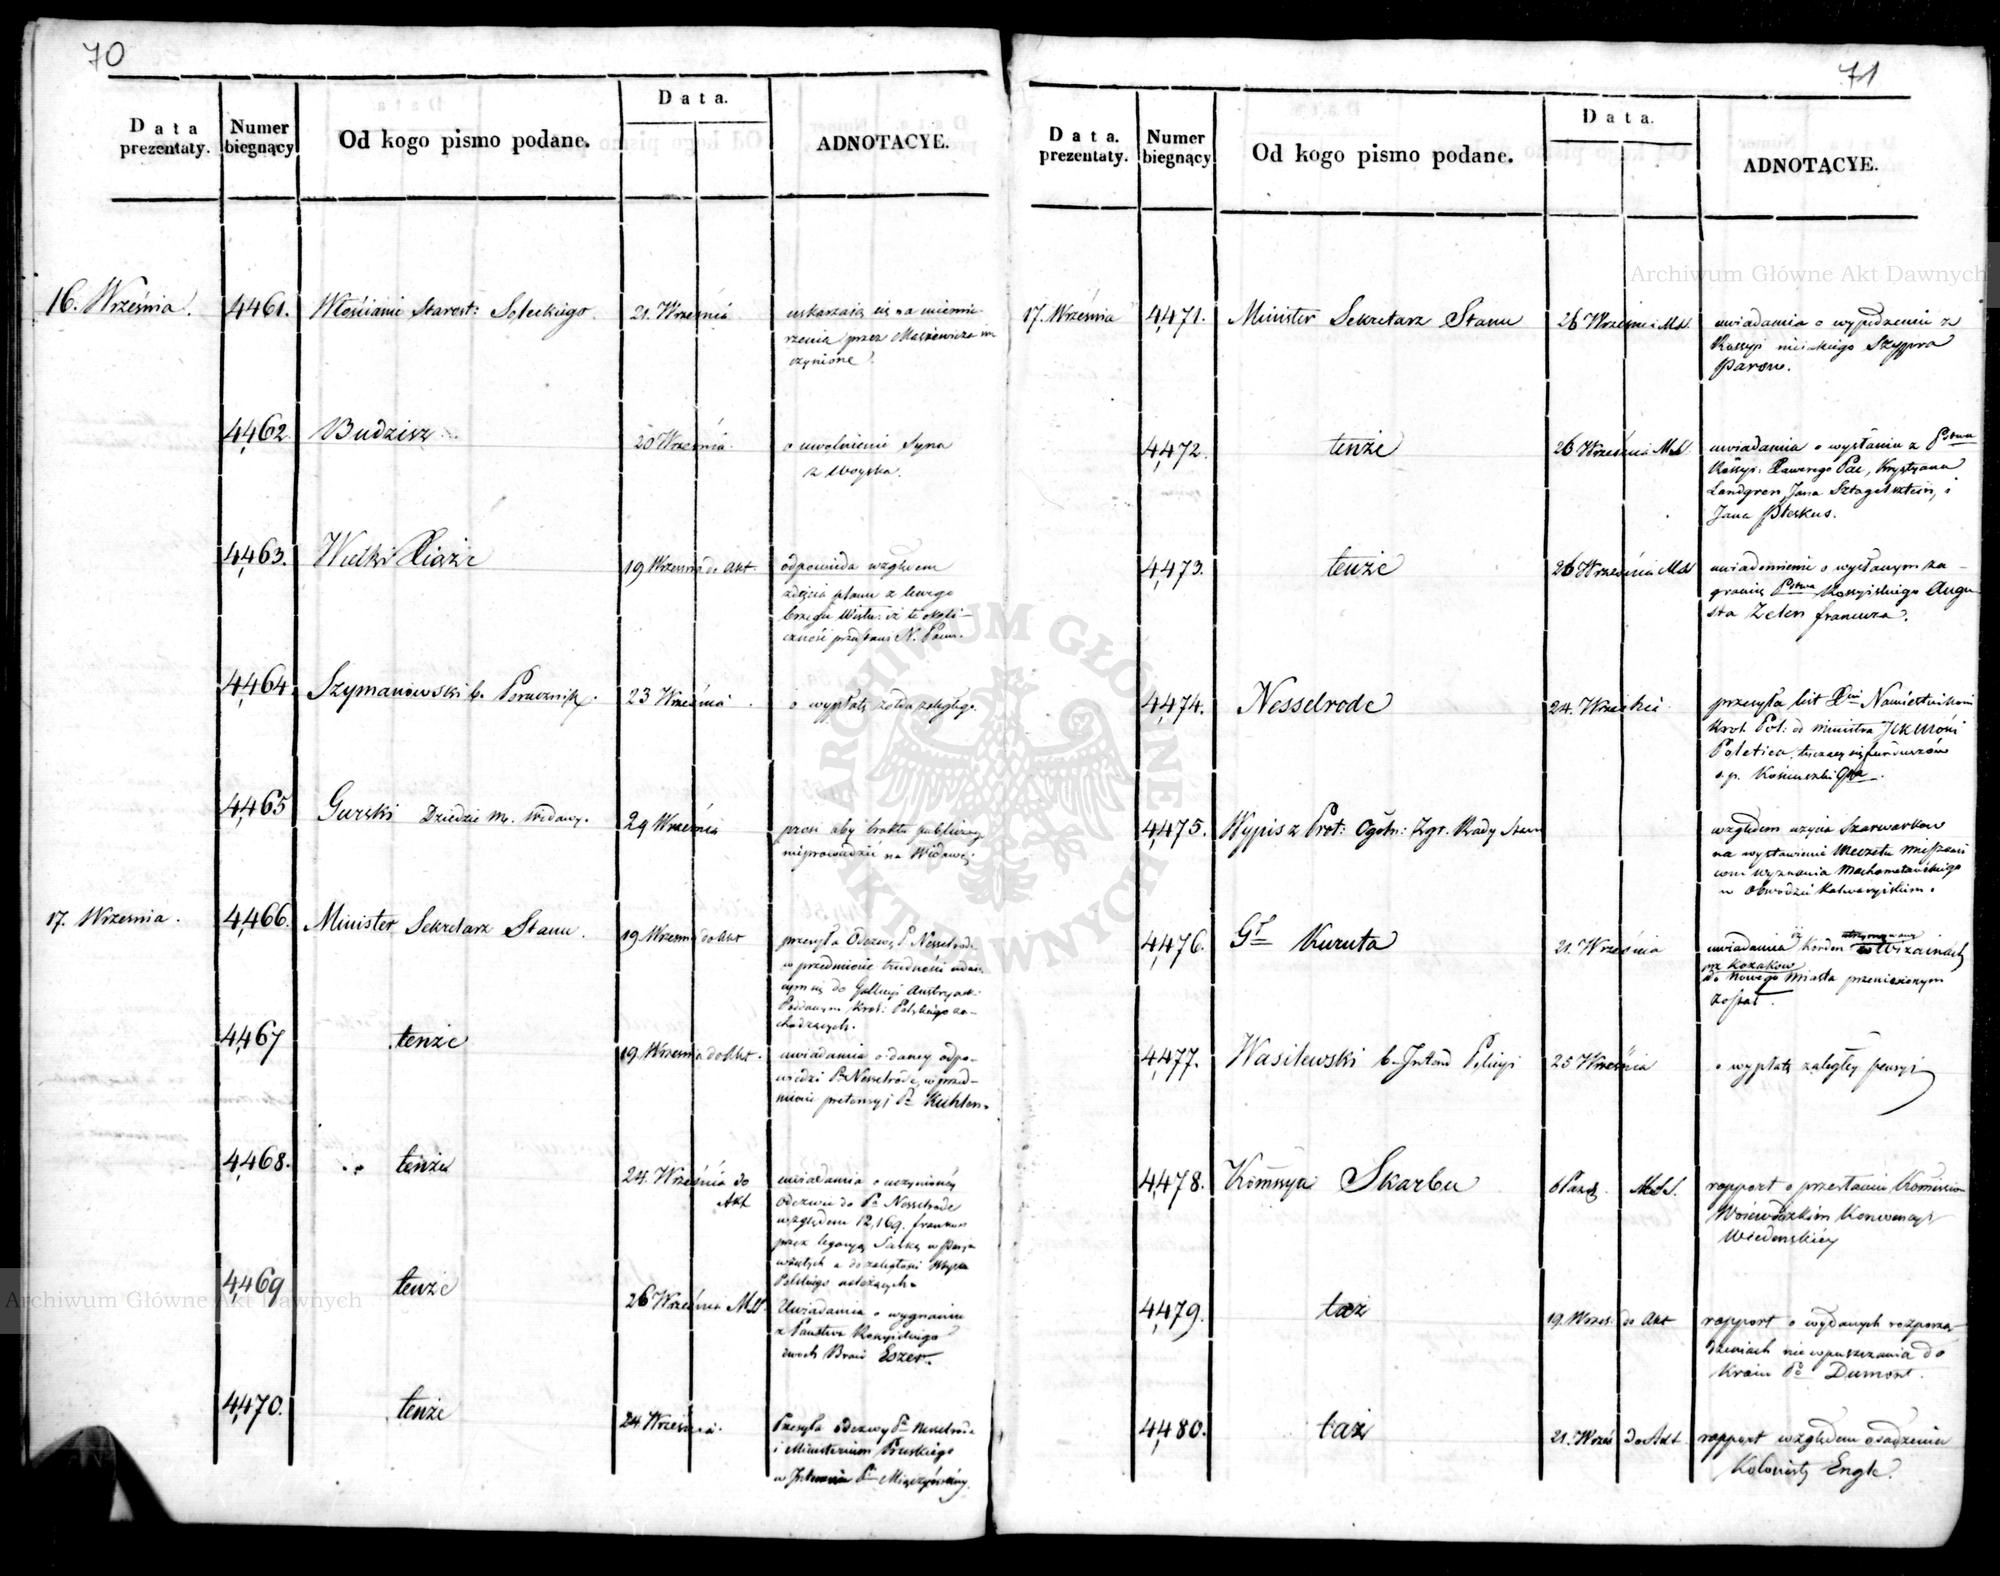 70
Data prezentaty.
Numer biegnący
Od kogo pismo podane.
Data.
ADNOTACYE.
16. Września.
4461.
Włościanie Starost: Soleckiego.
21. Września
uskarzaią się na uciemie-
rzenia przez
czynione.
4462.
Budzisz
20 Września.
o uwolnienie Syna
z woyska.
4463.
Wielki Xiąże
19 Września do Akt.
odpowiada względem
zdięcia planu z lewego
brzegu Wisły: iż te okoli-
czność N. Panu.
4464.
Szymanowski b. Porucznik.
23 Września
o wypłatę żołdu zaległego.
4465
Gurski Dziedzic m. Widawy.
29 Września
prosi aby traktu publiczneg
nieprowadzić na Widawę.
17. Września.
4466.
Minister Sekretarz Stanu.
19 Września do Akt
przesyła Odezwę P. Nesselrode
w przedmiocie trudności
się do Gallicyi Austryack:
Poddanym Król: Polskiego za-
chodzących.
4467
tenże
19 Września do Akt.
uwiadamia o daney odpo-
wiedzi Pa Nesselrode, w przed-
miocie pretensyi Pa Kuhlen.
4468.
tenże
24. Września do
Akt
uwiadamia o uczynioney
Odezwie do Pa Nesselrode
względem 12,169. franków
przez legacyę Saską w
wziętych a do zaległości Woyska
Polskiego należących.
4469
tenże
26 Września M.S.
Uwiadamia o wygnaniu
z Państwa Rossyiskiego
dwóch Braci Eszer.
4470.
tenże
24. Września.
Przesyła odezwy Pa Nesselrode
i Ministerium Pruskiego
w Pi
71
Data. prezentaty.
Numer biegnący
Od kogo pismo podane.
Data.
ADNOTACYE.
17. Września
4471.
Minister Sekretarz Stanu
26 Września M.S.
uwiadamia o wypędzeniu z
Rossyi nieiakiego Szypra
Parow.
4472.
tenże
26 Września M.S.
uwiadamia o wysłaniu z Pstwa
Rossyi: Xawerego Pac, Krystyana
Landgren, Jana Sztagelsztein, i
Jana Pleskus.
4473.
tenże
26 Września M.S
uwiadomienie o wysłanym za-
granicę Pstwa Rossyiskiego Augu
sta Zelen francuza.
4474.
Nesselrode
24. Września
przesyła list Xcia Namiestnikowi
Król. Pol: od ministra JCKMości
Poletica, tyczący się funduszów
s.p. Kosciuszki Gła.
4475.
Wypis z Prot: Ogóln: Zgr. Rady Stanu
względem użycia Szarwarków
na wystawienie Meczetu
wyznania Machometańskiego
w Obwodzie Kalwaryiskim.
4476.
Gł Kuruta
21. Września
uwiadamia iż Kordon utrzymywany
w Wizainach
prz Kozaków
do nowego Miasta przeniesionym
został.
4477.
Wasilewski b. Intend Policyi
25 Września
o wypłatę zaległey pensyi
4478.
Kommssya Skarbu
6 Pazd. M.S.
rapport o przesłaniu Kommissiom
Woiewodzkim Konwencyi
Wiedeńskiey
4479.
taż
19. Wrześ. do Akt
rapport o wydanych rozporzą
dzeniach niewpuszczania do
Kraiu Pa Dumont.
4480.
taż
21. Wrześ do Akt
rapport względem osadzenia
Kolonisty Engle.
Archiwum Główne Akt Dawnych
Archiwum Główne Akt Dawnych
ARCHIWUM GŁÓWNE AKT DAWNYCH